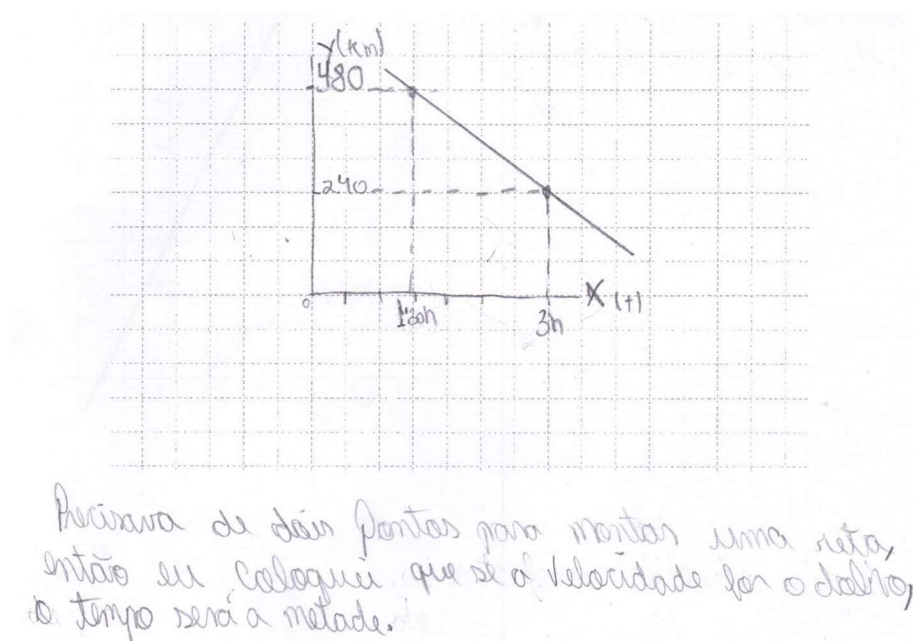 y(Km)
480
240
0
1:30h
3h
X (t)
Precisava de dois pontos para montar uma reta,
então eu coloquei que se a velocidade for o dobro,
o tempo será a metade.